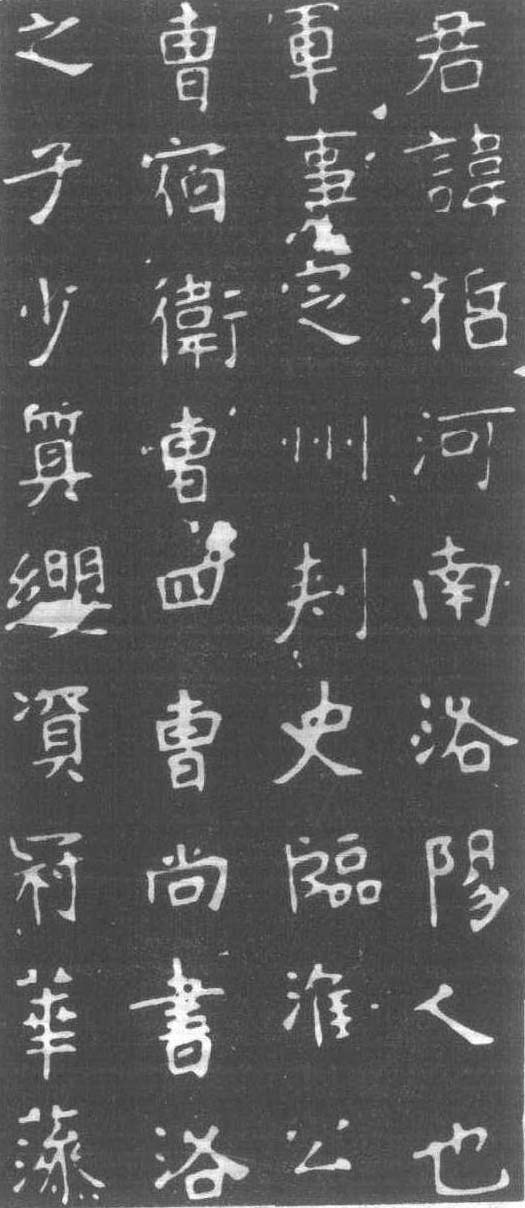 君諱河南洛陽人也
軍事定州刺史臨淮公
曹宿衛曹四曹尚書洛
之子少纓資冠華